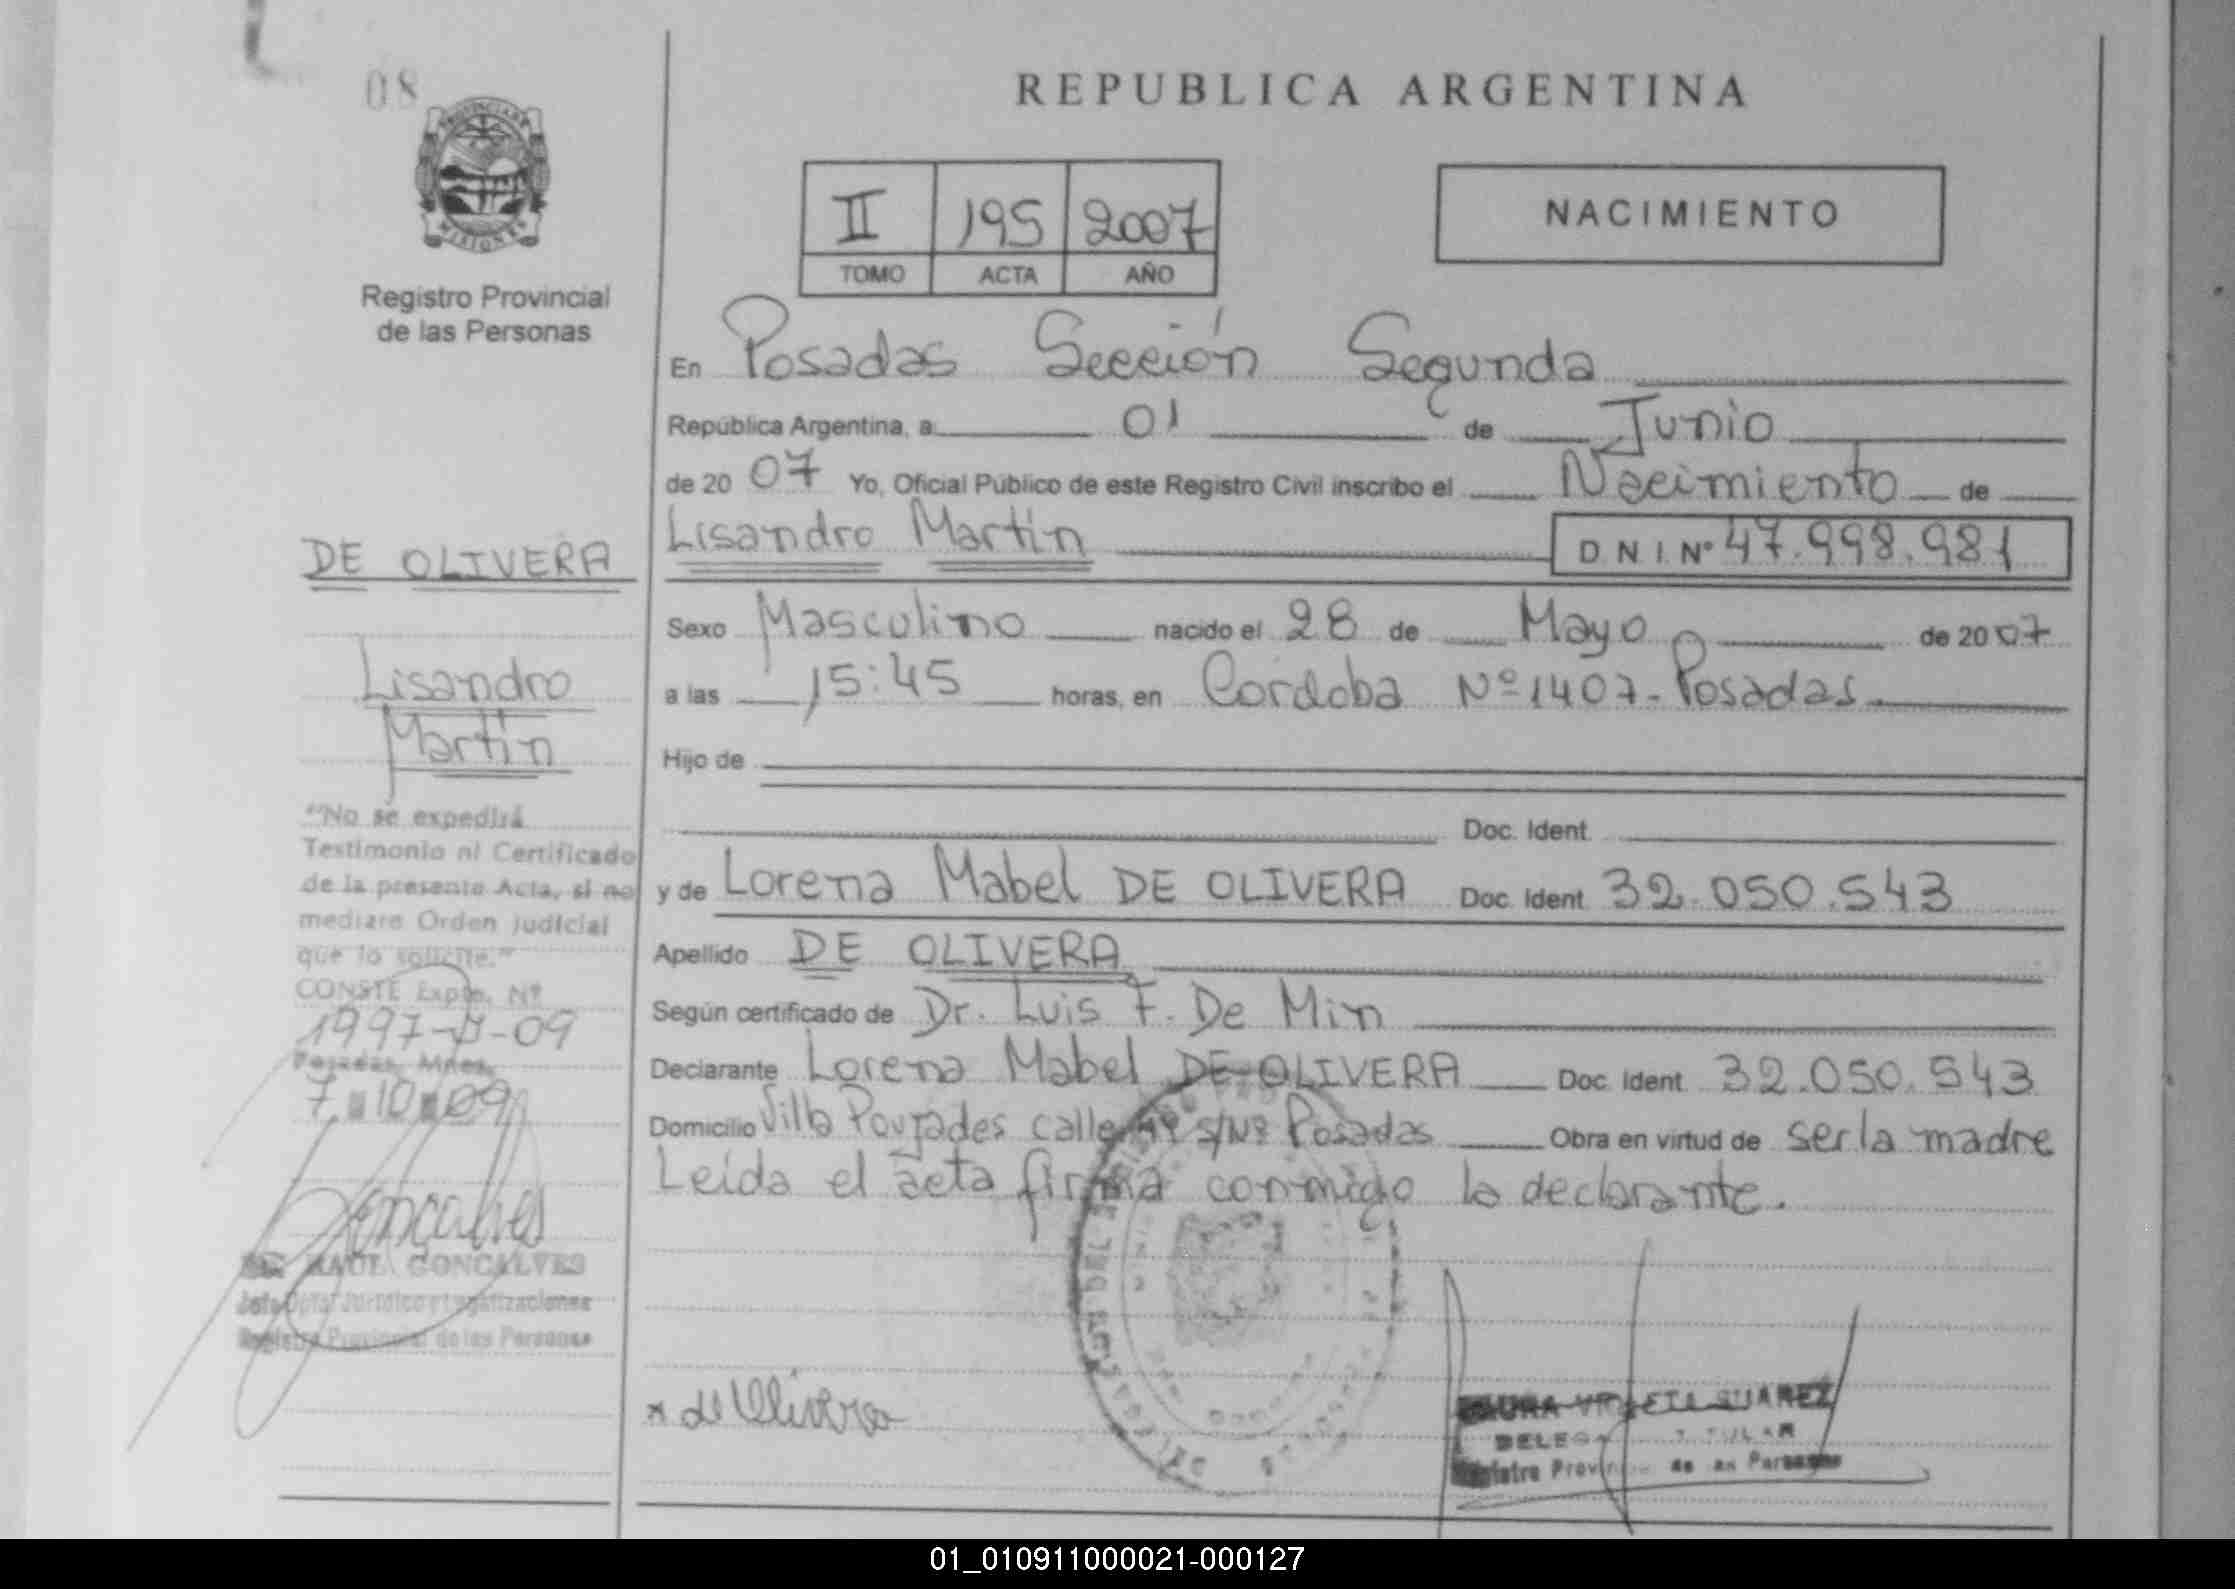 08
PROVINCIA DE
MISIONES
Registro Provincial
de las Personas
REPUBLICA ARGENTINA
II 195 2007
TOMO ACTA AÑO
NACIMIENTO
En Posadas Sección Segunda
República Argentina, a 01 de Junio
de 20 07 Yo, Oficial Público de este Registro Civil inscribo el Nacimiento de
Lisandro Martín D.N.I. Nº 47.998.981
Sexo Masculino nacido el 28 de Mayo de 20 07
a las 15:45 horas, en Córdoba Nº 1407 - Posadas
Hijo de
Doc. Ident.
y de Lorena Mabel DE OLIVERA Doc. Ident. 32.050.543
Apellido DE OLIVERA
Según certificado de Dr. Luis F. De Min
Declarante Lorena Mabel DE OLIVERA Doc. Ident. 32.050.543
Domicilio Villa Poujades calle s/Nº Posadas Obra en virtud de ser la madre
Leída el acta firma conmigo la declarante.
DE OLIVERA
Lisandro
Martín
"No se expedirá
Testimonio ni Certificado
de la presente Acta, si no
mediare Orden Judicial
que lo solicite."
CONSTE Expte. Nº
1997-D-09
Posadas, Mnes.
7 10 09
Goncalves
RAUL GONCALVES
Jefe Dpto. Jurídico y Legalizaciones
Registro Provincial de las Personas
x de Olivera
SUAREZ
TITULAR
Registro Provincial de las Personas
01_010911000021-000127